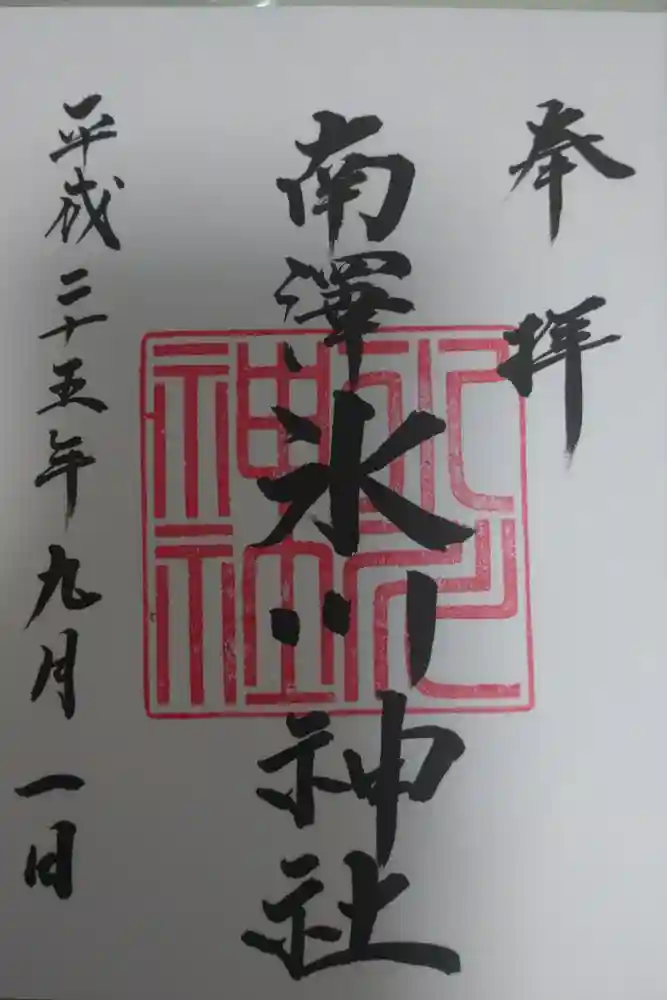 奉拝
南澤氷川神社
平成二十五年九月一日
氷川
神社